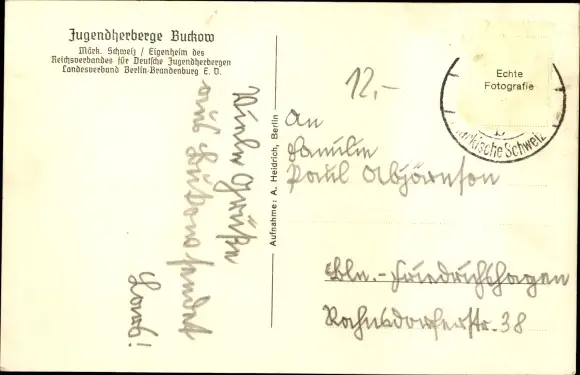 Jugendherberge Buckow
Märk. Schweiz / Eigenheim des
Reichsverbandes für Deutsche Jugendherbergen
Landesverband Berlin-Brandenburg E. V.
Viele Grüße
aus Buckow sendet
Aufnahme: A. Heidrich, Berlin
12,-
Echte
Fotografie
Märkische Schweiz
An
Familie
Paul Abjörnson
Bln.-Friedrichshagen
Rahnsdorferstr. 38